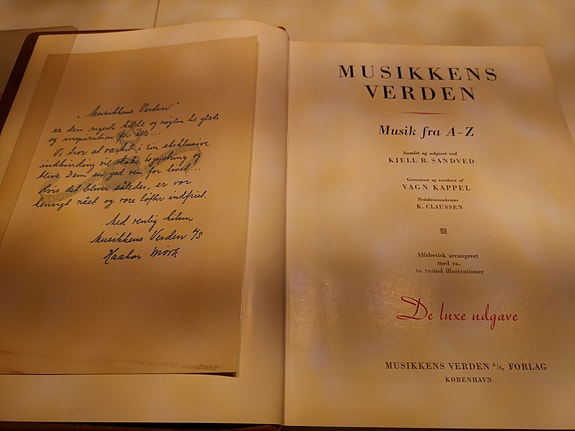 „Musikkens Verden"
er den rigeste kilde og nøglen til glæde
og inspiration for alle...
Vi tror at værket i sin eksklusive
indbinding vil skabe begejstring og
blive Dem en god ven for livet...
Hvis det bliver således, er vor
hensigt nået og vore løfter indfriet.
Med venlig hilsen
Musikkens Verden A/S
Haakon Mørk
MUSIKKENS
VERDEN
Musik fra A-Z
Samlet og udgivet ved
KJELL B. SANDVED
Gennemset og revideret af
VAGN KAPPEL
Redaktionssekretær
K. CLAUSSEN
Alfabetisk arrangeret
med ca.
to tusind illustrationer
De luxe udgave
MUSIKKENS VERDEN A/S, FORLAG
KØBENHAVN